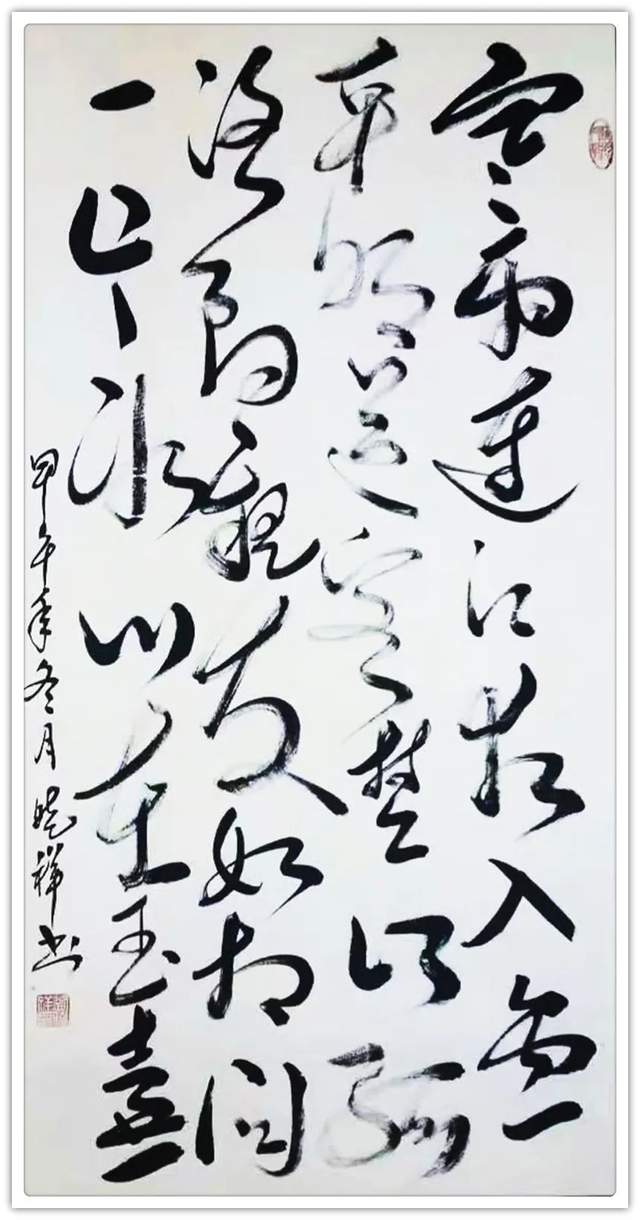 寒雨連江夜入吴
平明送客楚山孤
洛陽親友如相问
一片冰心在玉壺
甲午年冬月晓祥书